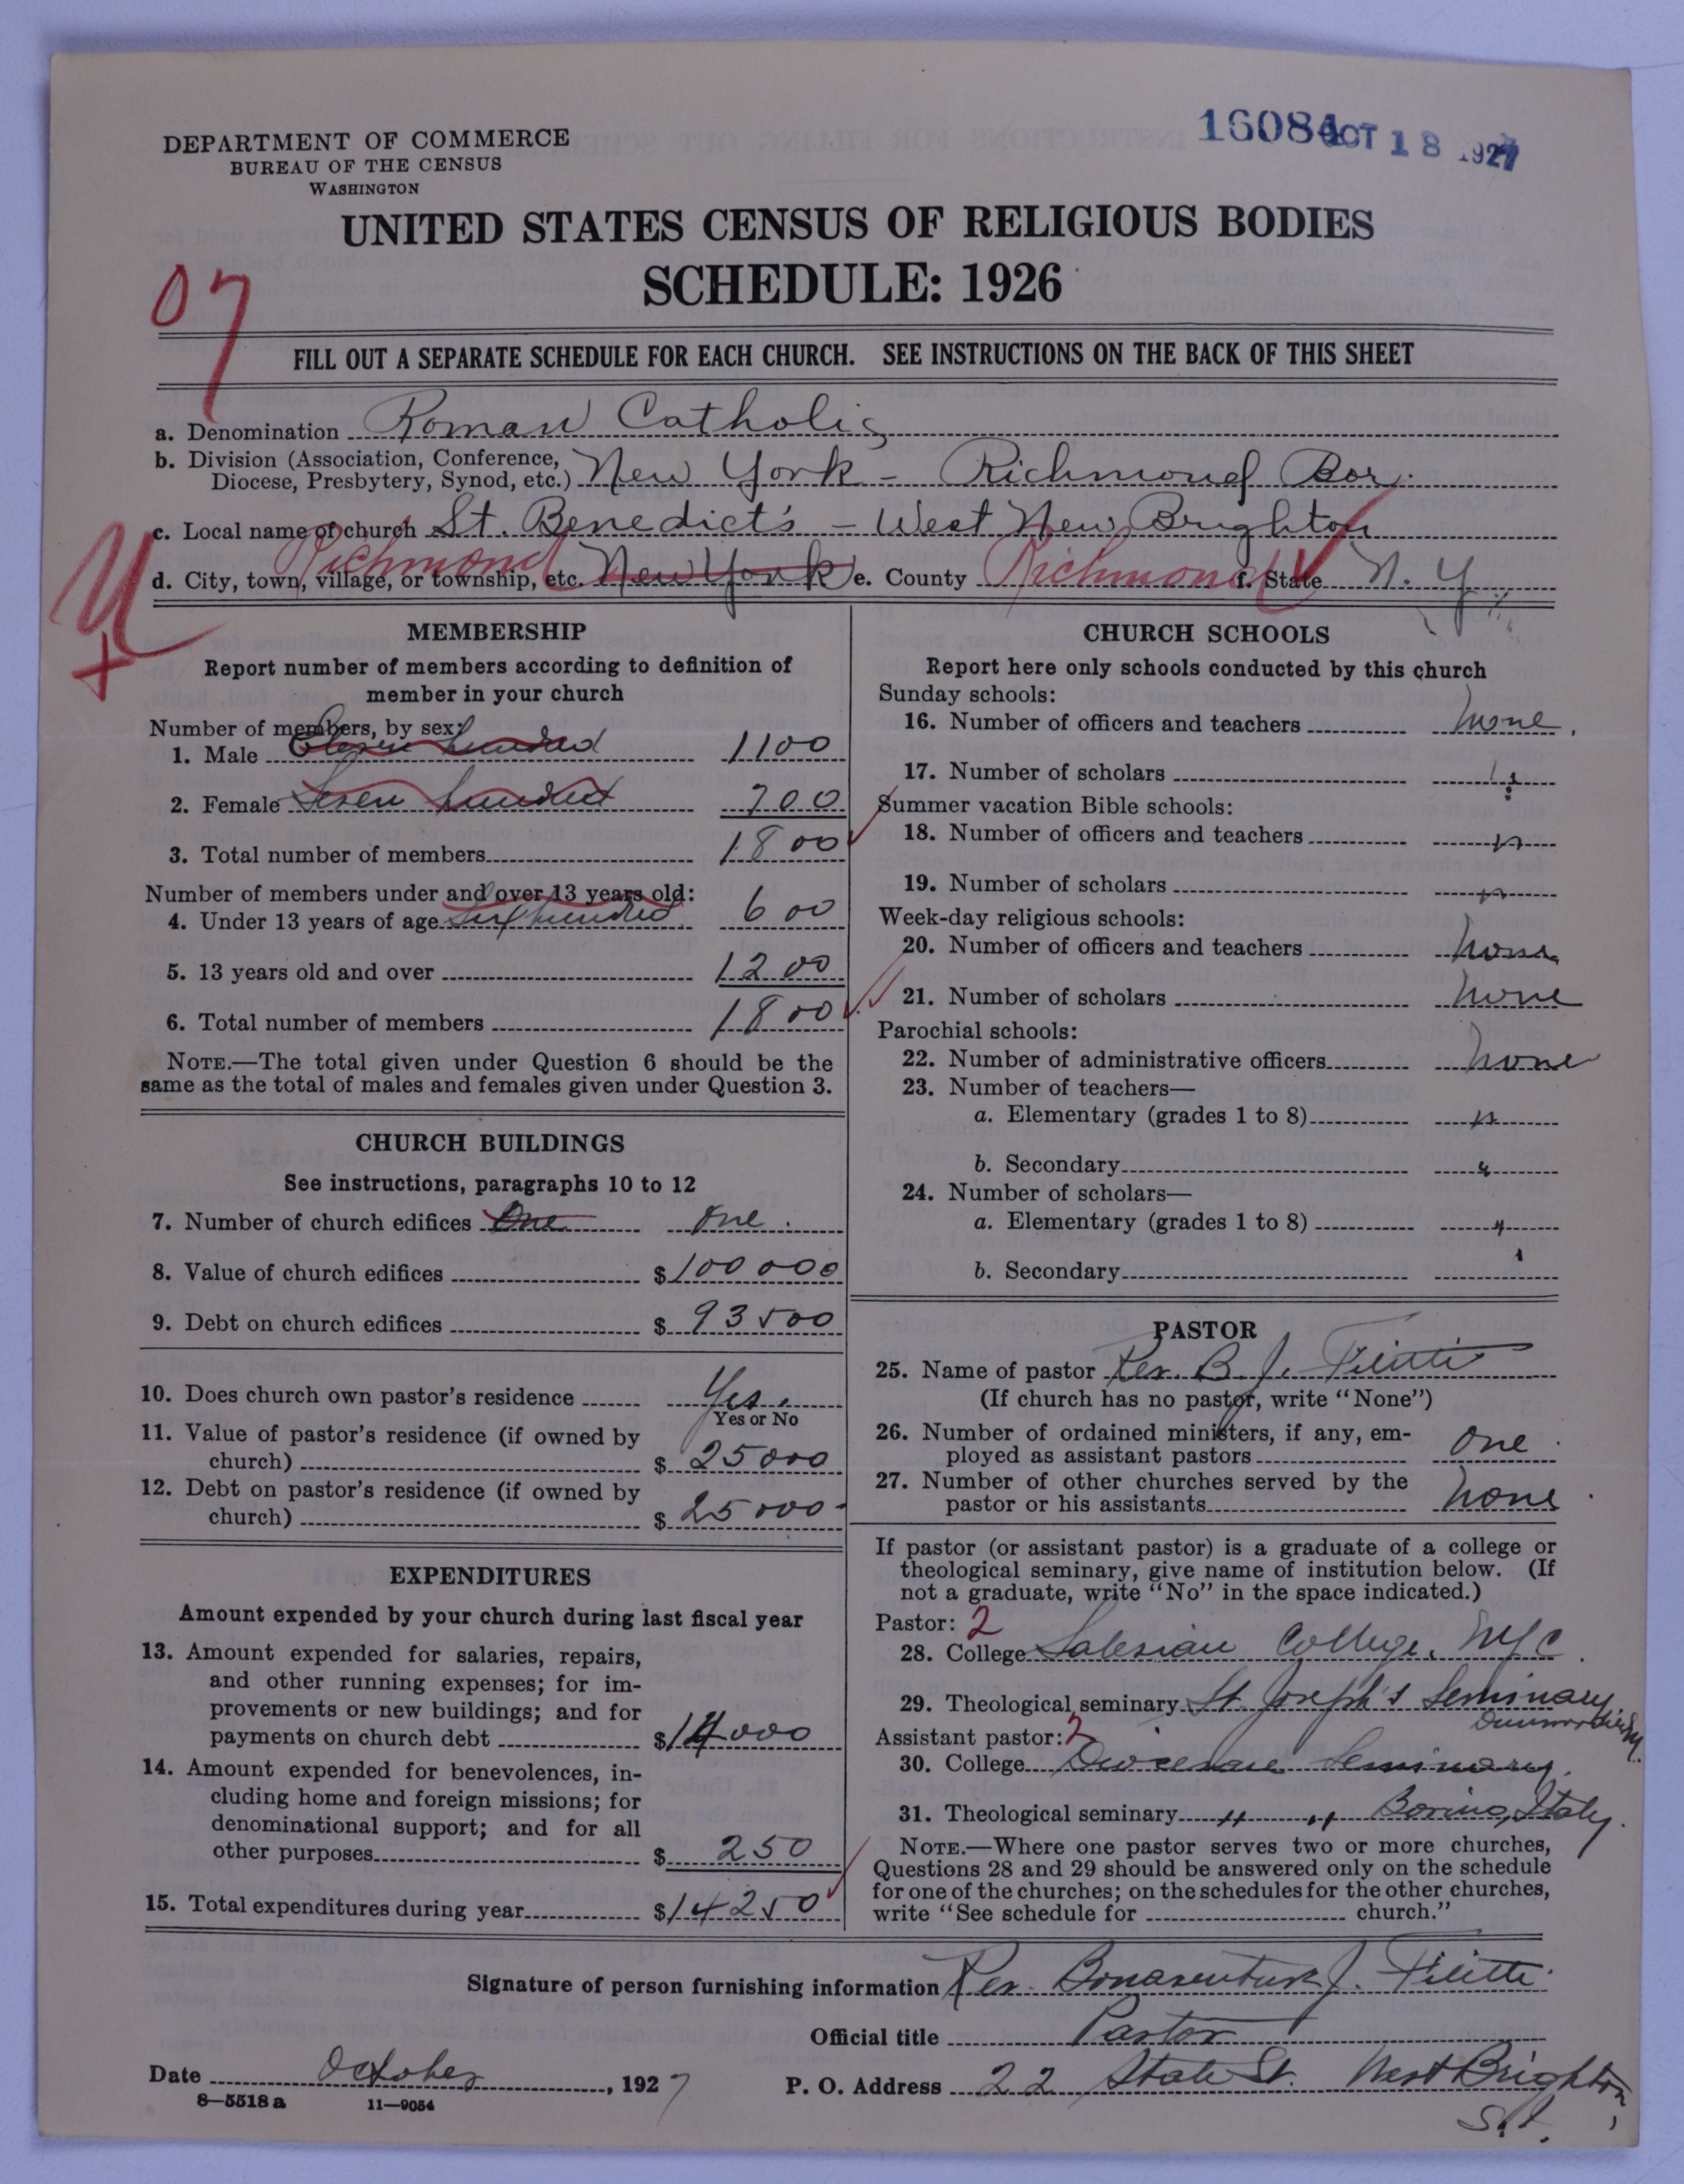 DEPARTMENT OF COMMERCE
BUREAU OF THE CENSUS
WASHINGTON
16084 OCT 18 1927
UNITED STATES CENSUS OF RELIGIOUS BODIES
SCHEDULE: 1926
07
FILL OUT A SEPARATE SCHEDULE FOR EACH CHURCH. SEE INSTRUCTIONS ON THE BACK OF THIS SHEET
a. Denomination Roman Catholic
b. Division (Association, Conference, Diocese, Presbytery, Synod, etc.) New York - Richmond Bor.
c. Local name of church St. Benedict's - West New Brighton
d. City, town, village, or township, etc. New York Richmond e. County Richmond f. State N. Y.
MEMBERSHIP
Report number of members according to definition of
member in your church
Number of members, by sex:
1. Male Eleven hundred 1100
2. Female Seven hundred 700
3. Total number of members 1800
Number of members under and over 13 years old:
4. Under 13 years of age Six hundred 600
5. 13 years old and over 1200
6. Total number of members 1800
NOTE.—The total given under Question 6 should be the
same as the total of males and females given under Question 3.
CHURCH BUILDINGS
See instructions, paragraphs 10 to 12
7. Number of church edifices One one.
8. Value of church edifices $100000
9. Debt on church edifices $93500
10. Does church own pastor's residence Yes.
Yes or No
11. Value of pastor's residence (if owned by
church) $25000
12. Debt on pastor's residence (if owned by
church) $25000
EXPENDITURES
Amount expended by your church during last fiscal year
13. Amount expended for salaries, repairs,
and other running expenses; for im-
provements or new buildings; and for
payments on church debt $14000
14. Amount expended for benevolences, in-
cluding home and foreign missions; for
denominational support; and for all
other purposes $250
15. Total expenditures during year $14250
CHURCH SCHOOLS
Report here only schools conducted by this church
Sunday schools:
16. Number of officers and teachers none.
17. Number of scholars
Summer vacation Bible schools:
18. Number of officers and teachers "
19. Number of scholars "
Week-day religious schools:
20. Number of officers and teachers none
21. Number of scholars none
Parochial schools:
22. Number of administrative officers none
23. Number of teachers—
a. Elementary (grades 1 to 8) "
b. Secondary "
24. Number of scholars—
a. Elementary (grades 1 to 8) "
b. Secondary
PASTOR
25. Name of pastor Rev. B. J. Filitti
(If church has no pastor, write "None")
26. Number of ordained ministers, if any, em-
ployed as assistant pastors one.
27. Number of other churches served by the
pastor or his assistants none.
If pastor (or assistant pastor) is a graduate of a college or
theological seminary, give name of institution below. (If
not a graduate, write "No" in the space indicated.)
Pastor: 2
28. College Salesian College, NYC.
29. Theological seminary St. Joseph's Seminary
Assistant pastor: 2
30. College Diocesan Seminary.
31. Theological seminary " " Italy.
NOTE.—Where one pastor serves two or more churches,
Questions 28 and 29 should be answered only on the schedule
for one of the churches; on the schedules for the other churches,
write "See schedule for church."
Signature of person furnishing information Rev. Bonaventure J. Filitti
Official title Pastor
Date October, 1927
P. O. Address 22 State St. West Brighton,
S.I.
8—5518 a 11—9054